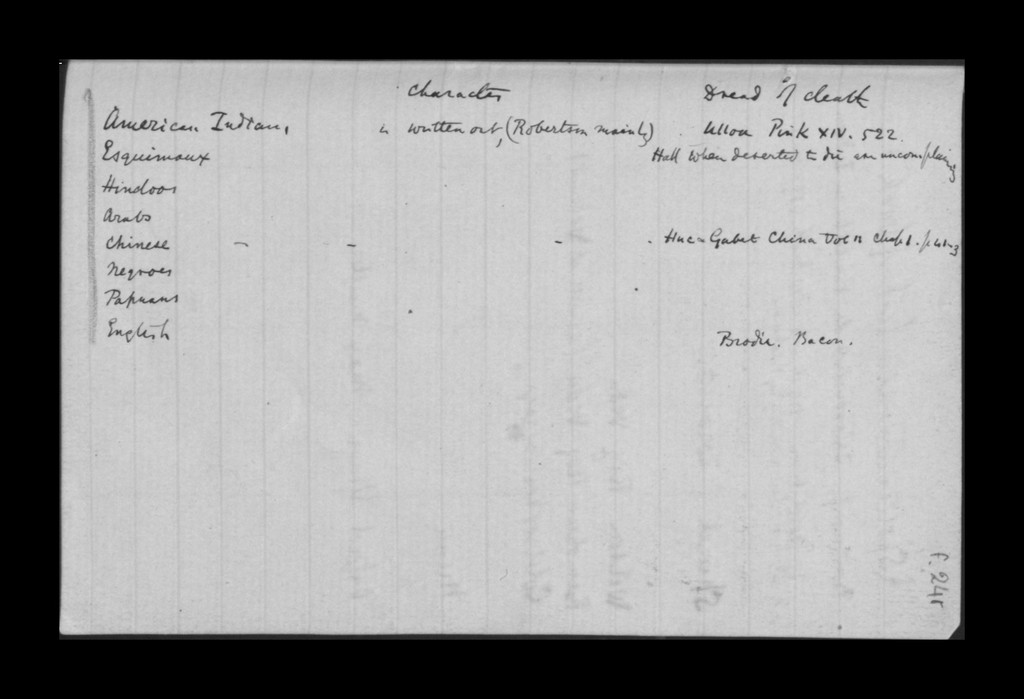 Character Dread of death
American Indians is written out, (Robertson mainly) . Ulloa Pink XIV. 522.
Esquimaux Hall when deserted to die are uncomplaining
Hindoos
Arabs
Chinese - - - . Huc & Gabet China Vol II Chap 1. p 41-3
Negroes
Papuans
English Brodie. Bacon.
f. 24r